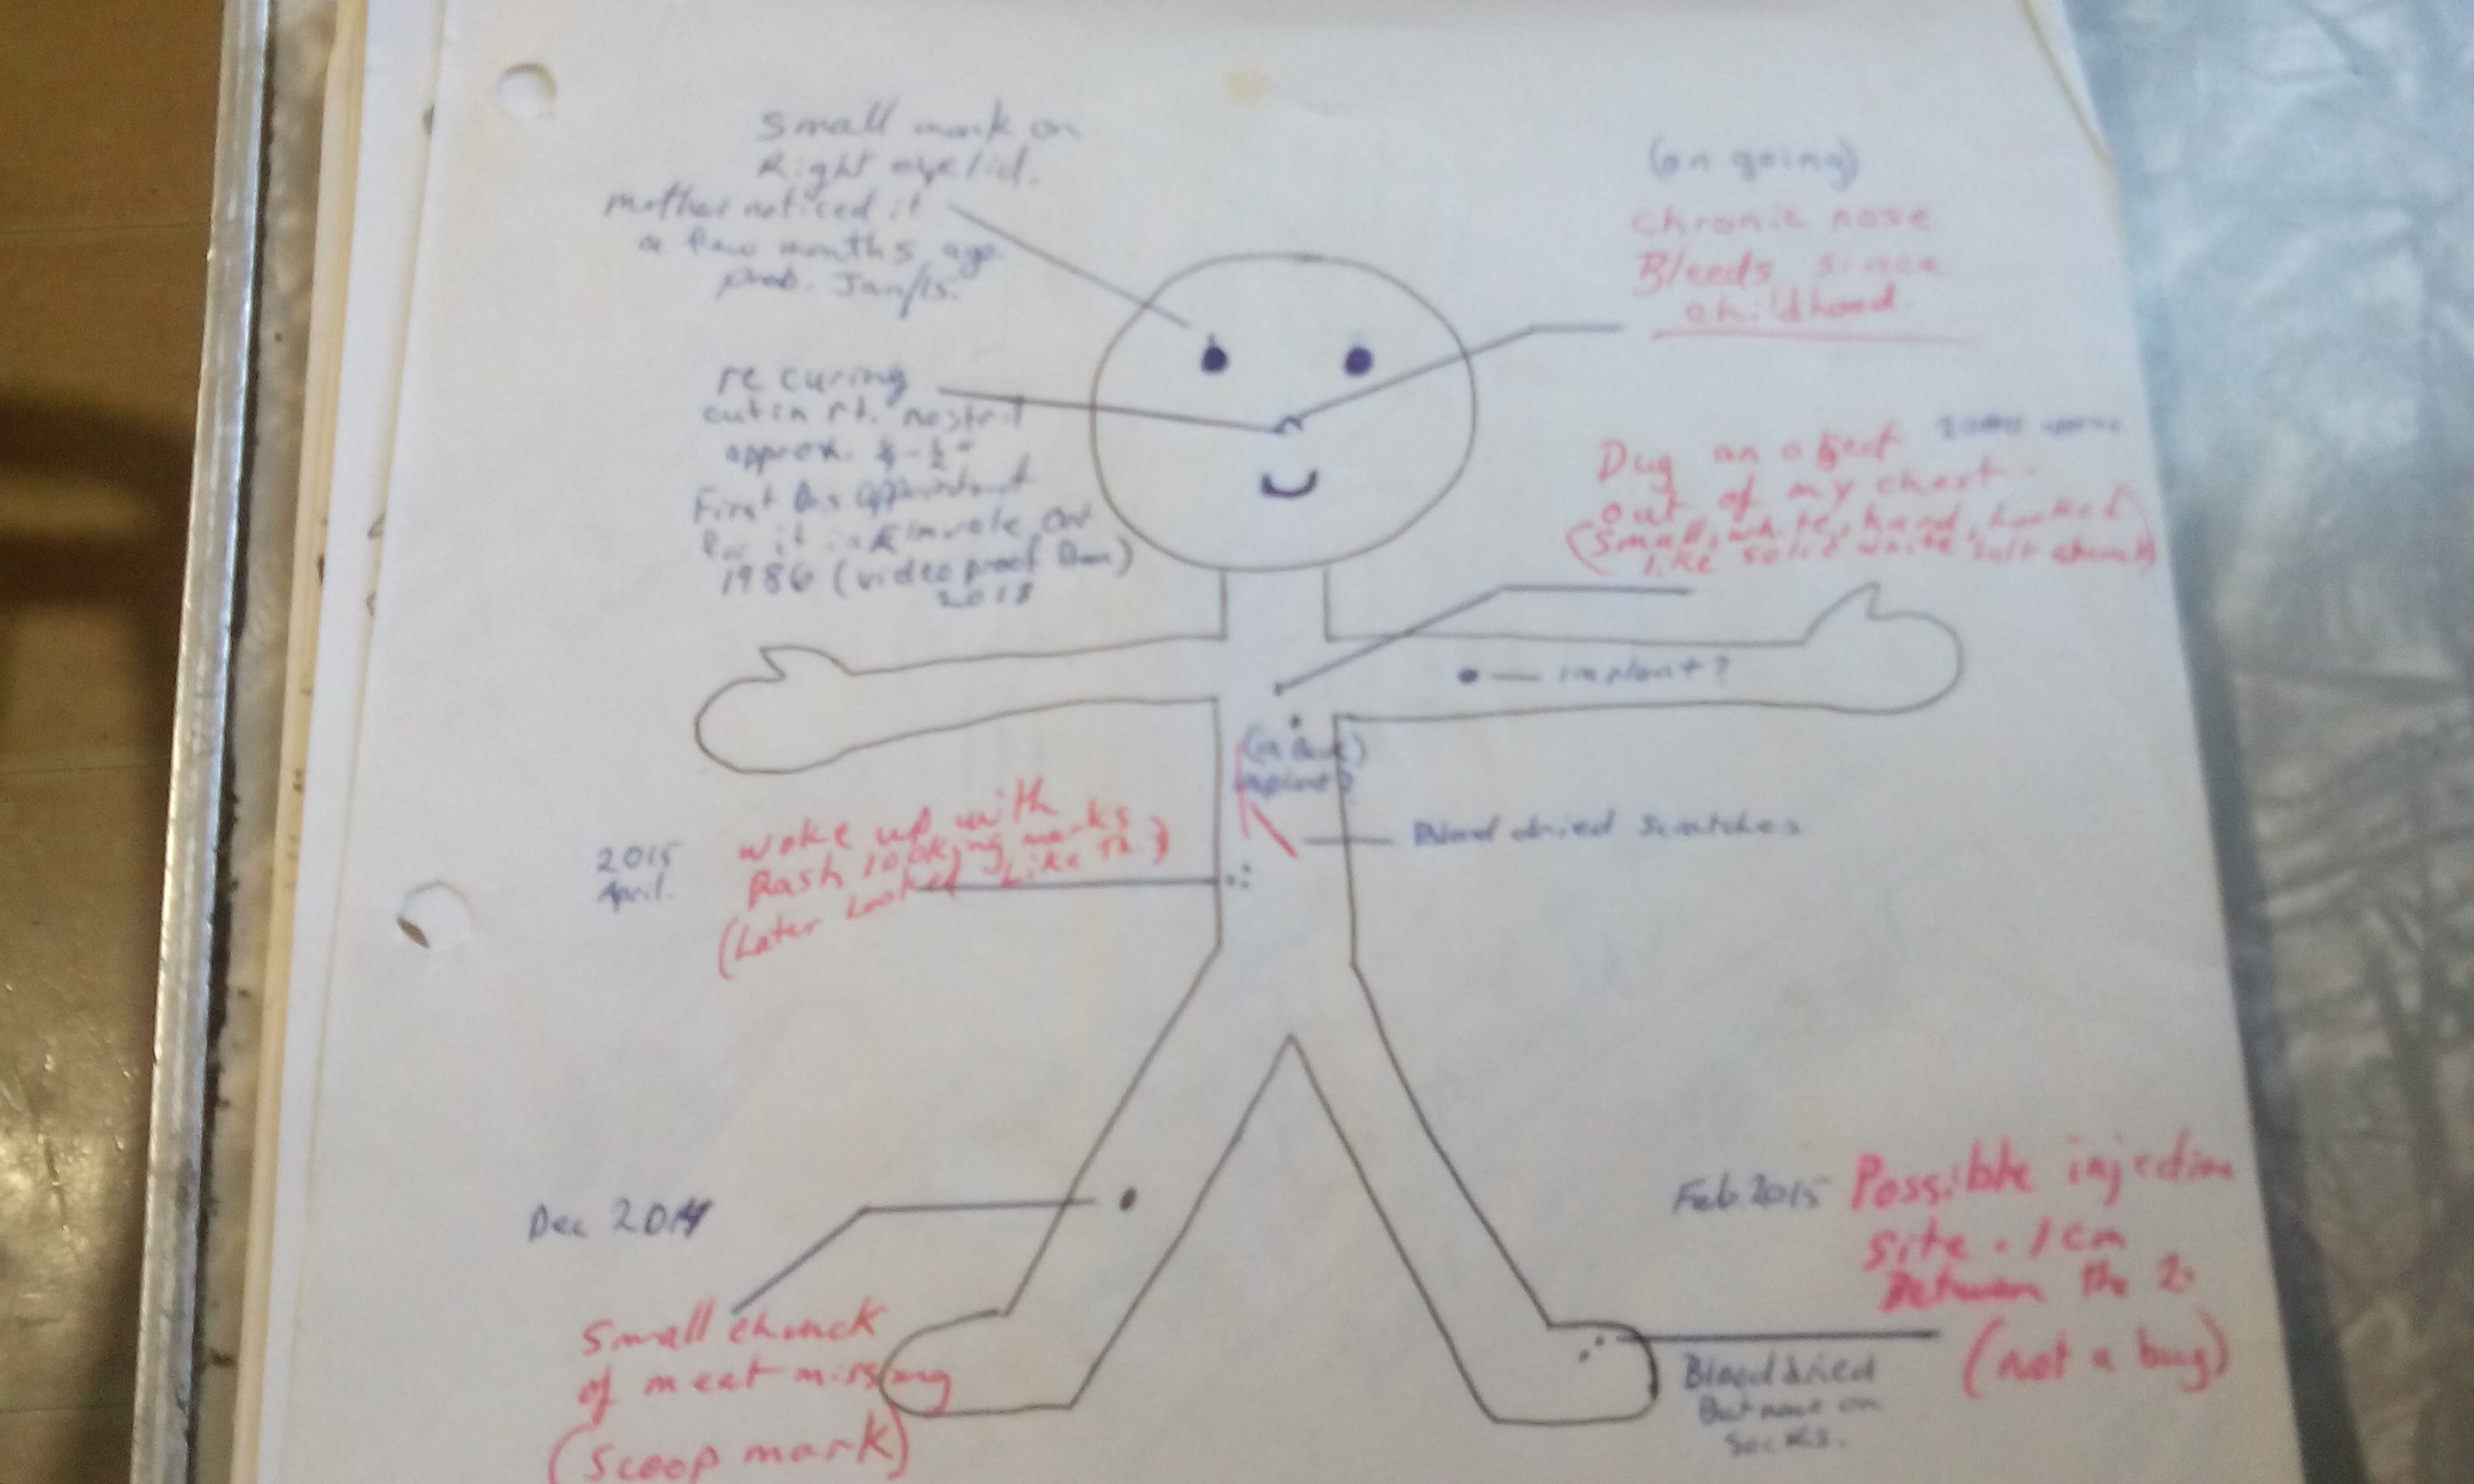 Small mark on
Right eyelid.
mother noticed it
a few months ago
prob. Jan/15.
(on going)
chronic nose
Bleeds since
childhood
re curing
cut in rt. nostril
approx. ¼-½"
First
it in Elmvale Ont
1986 (video proof
2018
Dug an object
out of my chest.
(Small, white, hard, looked
like solid white salt chunk)
implant?
(in
implant?
Blood dried Scratches
2015
April.
woke up with
Rash looking marks
(Later Looked Like
Dec 2014
Small chunck
of meet missing
(Scoop mark)
Feb. 2015 Possible injection
site. 1cm
Between the 2.
(not a bug)
Blood dried
But none on
Socks.